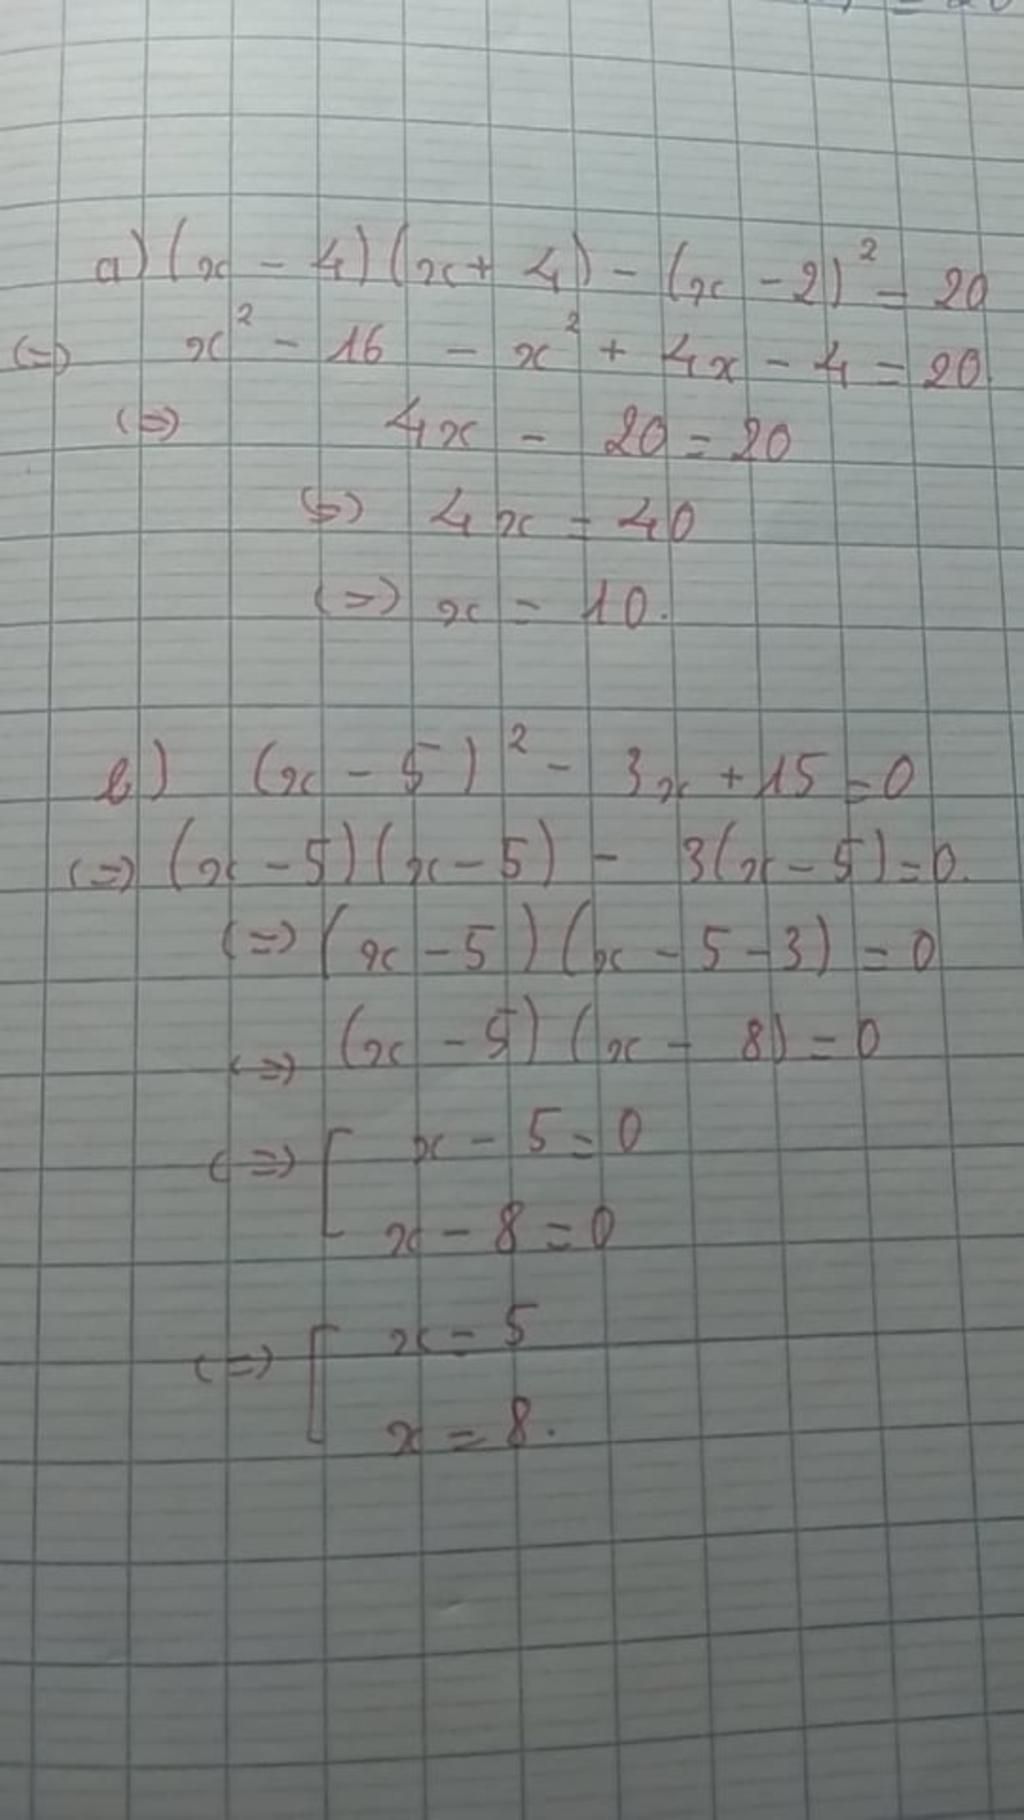 a) (x - 4)(x + 4) - (x - 2)² = 20
(=) x² - 16 - x² + 4x - 4 = 20
(=) 4x - 20 = 20
(=) 4x = 40
(=) x = 10.
b) (x - 5)² - 3x + 15 = 0
(=) (x - 5)(x - 5) - 3(x - 5) = 0.
(=) (x - 5)(x - 5 - 3) = 0
(=) (x - 5)(x - 8) = 0
(=) [ x - 5 = 0
x - 8 = 0
(=) [ x = 5
x = 8.